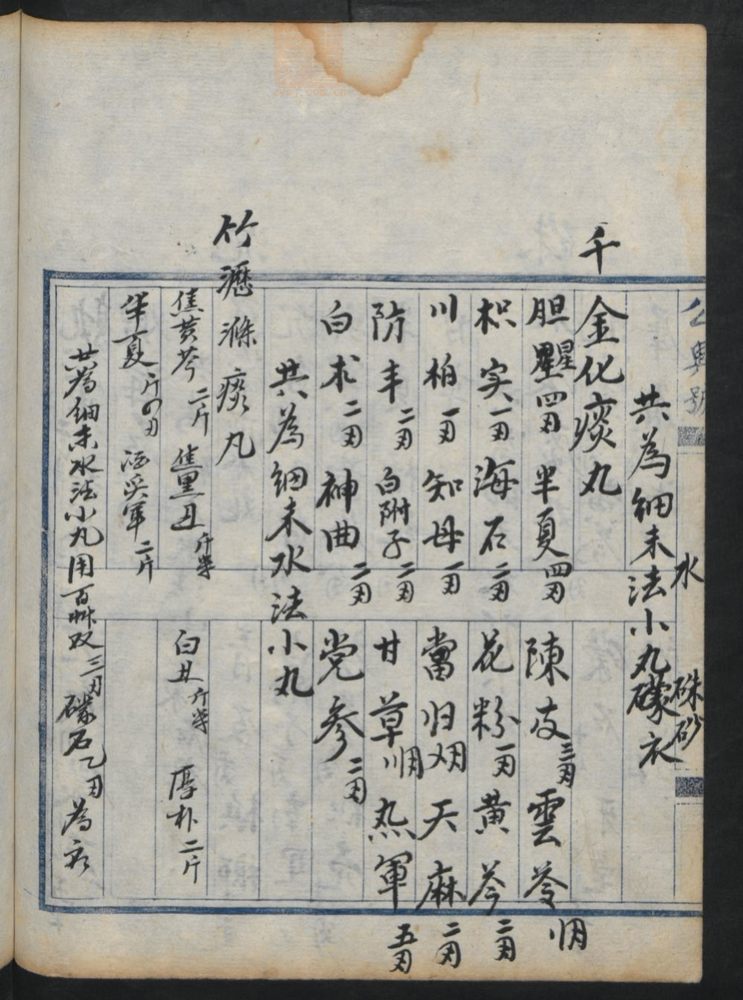 公興號
共為細末水法小丸硃砂衣
千金化痰丸
胆星四両 半夏四両 陳皮三両 雲苓
枳实一両 海石二両 花粉一両 黄芩二両
川柏一両 知母一両 當归 天麻二両
防丰二両 白附子二両 甘草 熟軍五両
白术二両 神曲二両 党参二両
共為細末水法小丸
竹瀝滌痰丸
焦黄芩二斤 焦黑丑 白丑 厚朴二斤
半夏 军二斤
共為細末水法小丸用 三両 礞石 為衣